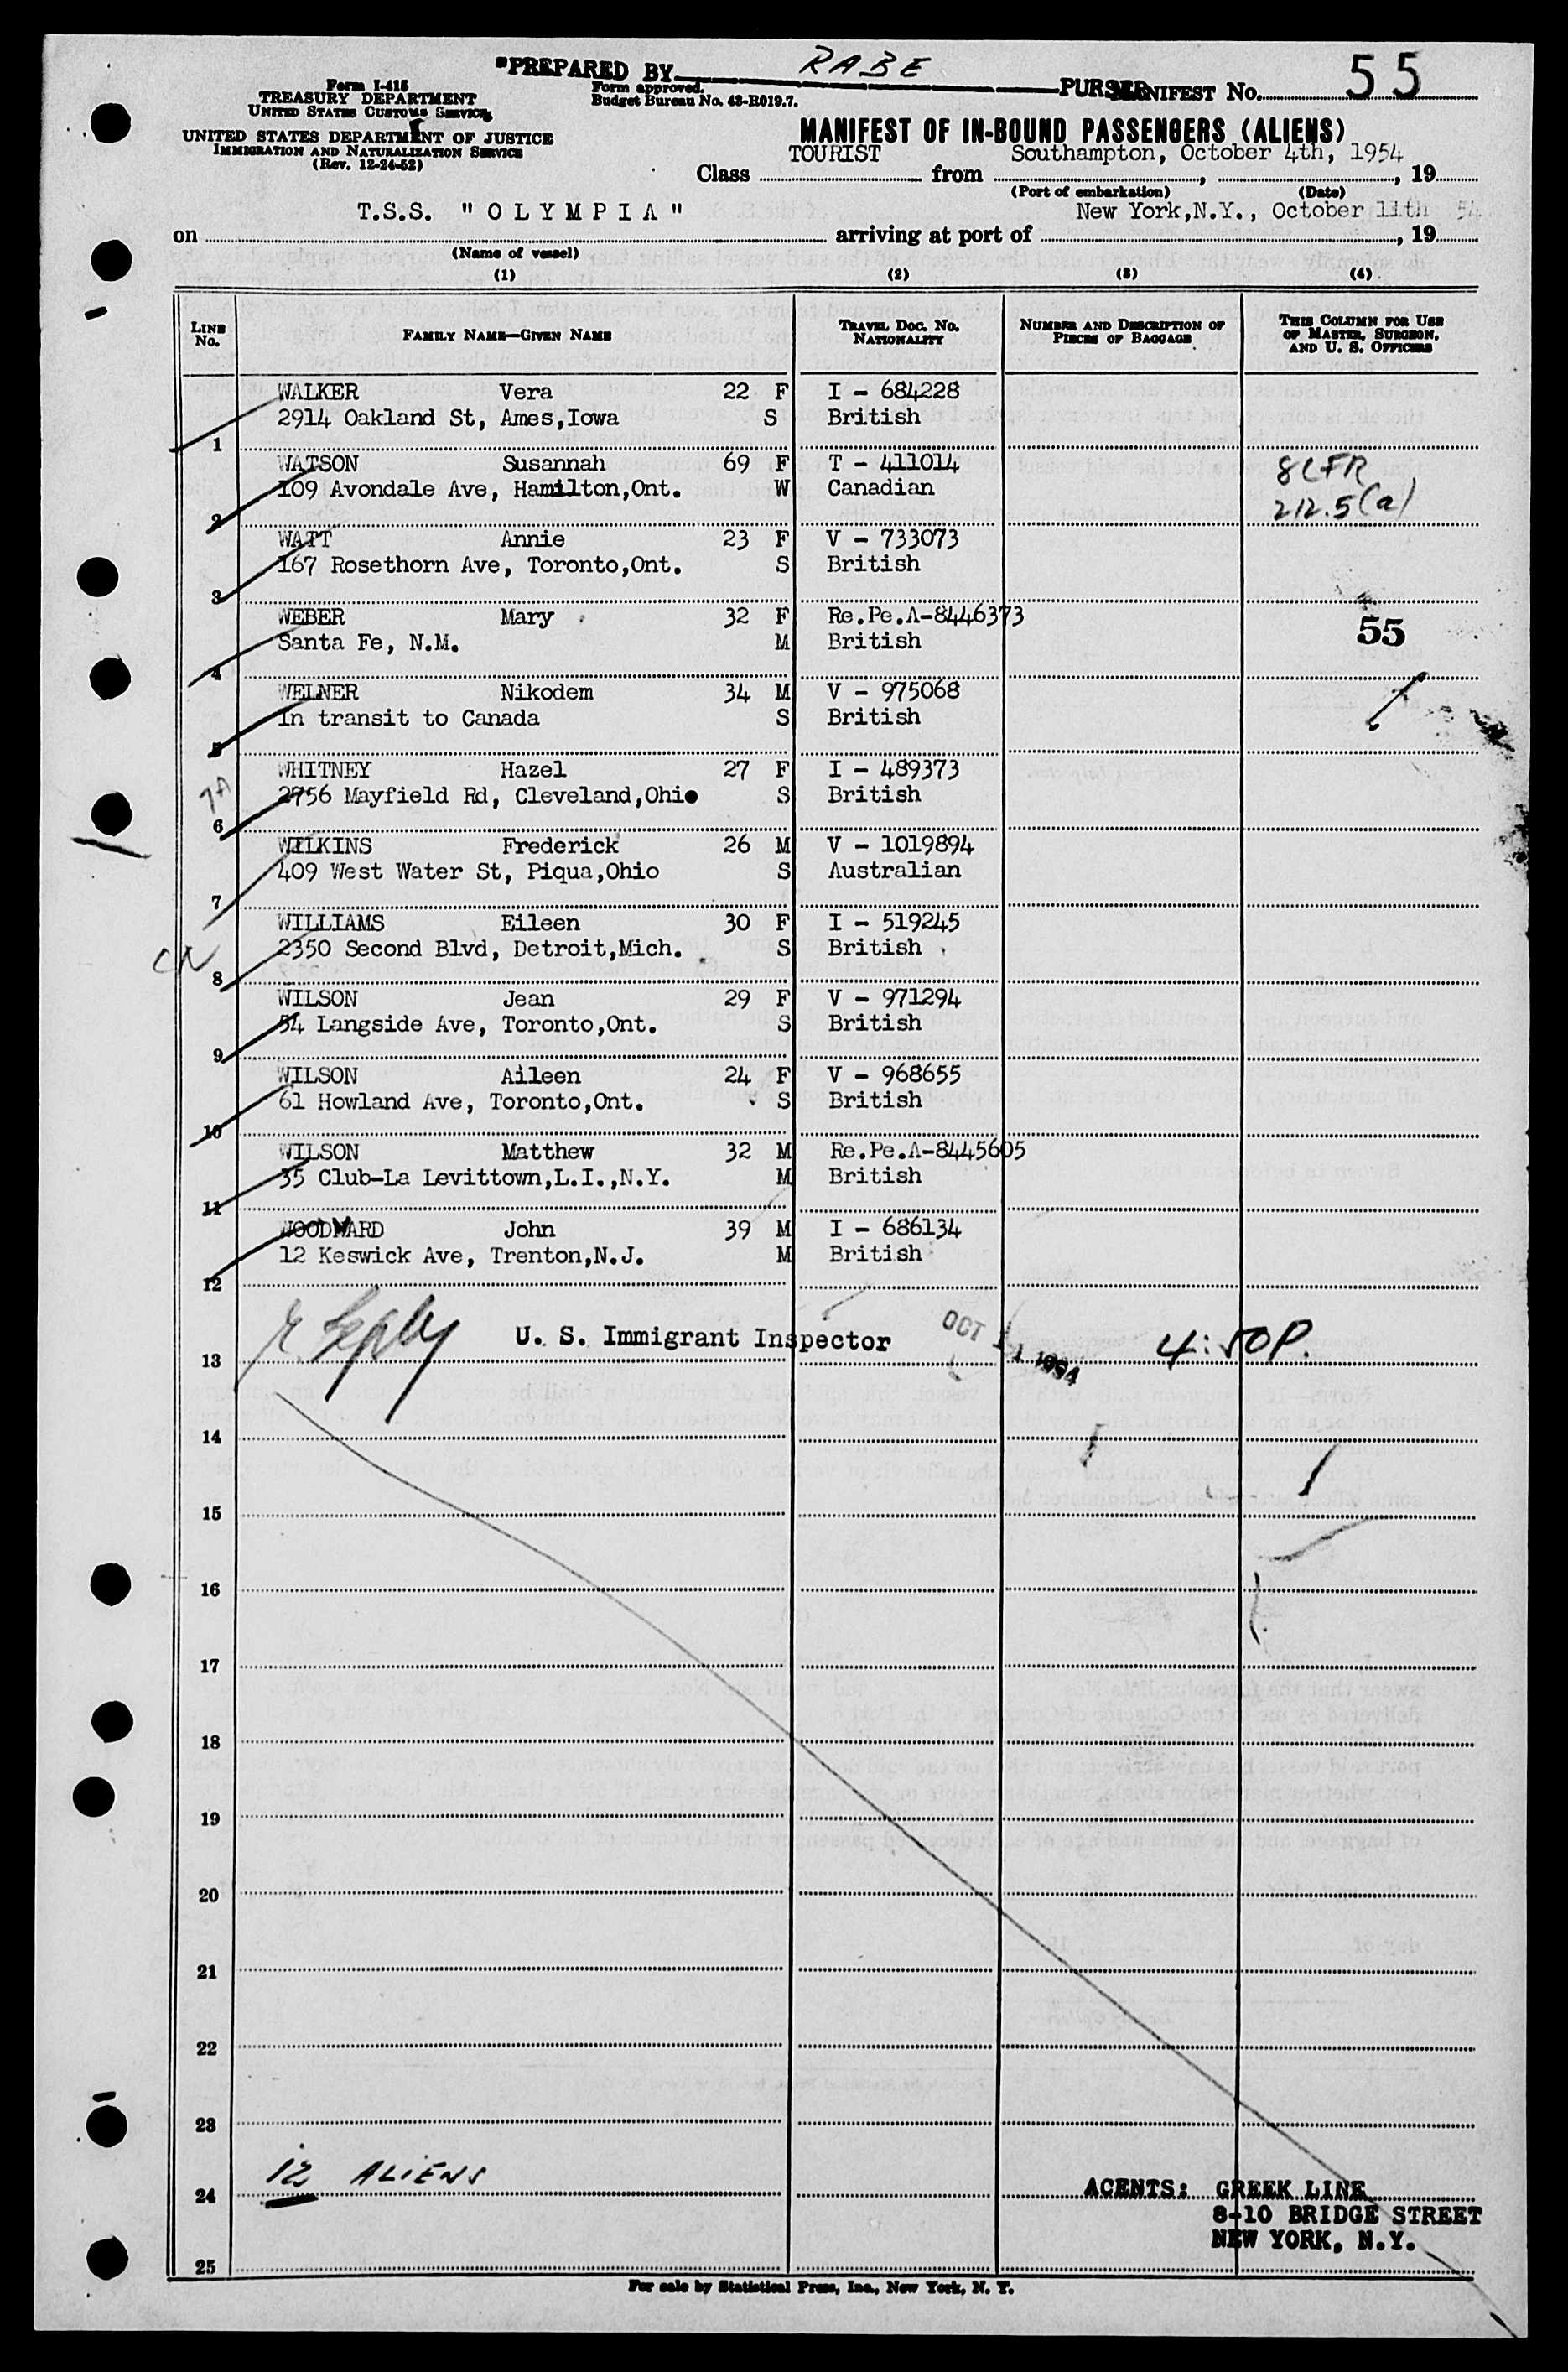 *PREPARED BY RABE PURSER
Form I-415
TREASURY DEPARTMENT
UNITED STATES CUSTOMS SERVICE
UNITED STATES DEPARTMENT OF JUSTICE
IMMIGRATION AND NATURALIZATION SERVICE
(Rev. 12-24-52)
Form approved.
Budget Bureau No. 43-R019.7.
MANIFEST No. 55
MANIFEST OF IN-BOUND PASSENGERS (ALIENS)
Class TOURIST from Southampton, October 4th, 1954, 19
(Port of embarkation) (Date)
on T.S.S. "OLYMPIA" arriving at port of New York,N.Y., October 11th, 19 54
(Name of vessel)
(1) (2) (3) (4)
LINE No. FAMILY NAME—GIVEN NAME TRAVEL DOC. No. NATIONALITY NUMBER AND DESCRIPTION OF PIECES OF BAGGAGE THIS COLUMN FOR USE OF MASTER, SURGEON, AND U. S. OFFICERS
WALKER Vera 22 F I - 684228
2914 Oakland St, Ames,Iowa S British
1
WATSON Susannah 69 F T - 411014 8CFR
109 Avondale Ave, Hamilton,Ont. W Canadian 212.5(a)
2
WATT Annie 23 F V - 733073
167 Rosethorn Ave, Toronto,Ont. S British
3
WEBER Mary 32 F Re.Pe.A-8446373 55
Santa Fe, N.M. M British
4
WELNER Nikodem 34 M V - 975068
In transit to Canada S British
5
WHITNEY Hazel 27 F I - 489373
7A 2756 Mayfield Rd, Cleveland,Ohio S British
6
WILKINS Frederick 26 M V - 1019894
409 West Water St, Piqua,Ohio S Australian
7
WILLIAMS Eileen 30 F I - 519245
2350 Second Blvd, Detroit,Mich. S British
8
WILSON Jean 29 F V - 971294
54 Langside Ave, Toronto,Ont. S British
9
WILSON Aileen 24 F V - 968655
61 Howland Ave, Toronto,Ont. S British
10
WILSON Matthew 32 M Re.Pe.A-8445605
35 Club-La Levittown,L.I.,N.Y. M British
11
WOODWARD John 39 M I - 686134
12 Keswick Ave, Trenton,N.J. M British
12
U. S. Immigrant Inspector OCT 11 1954 4:50P.
13
14
15
16
17
18
19
20
21
22
23
12 ALIENS
24 AGENTS: GREEK LINE
8-10 BRIDGE STREET
NEW YORK, N.Y.
25
For sale by Statistical Press, Inc., New York, N. Y.